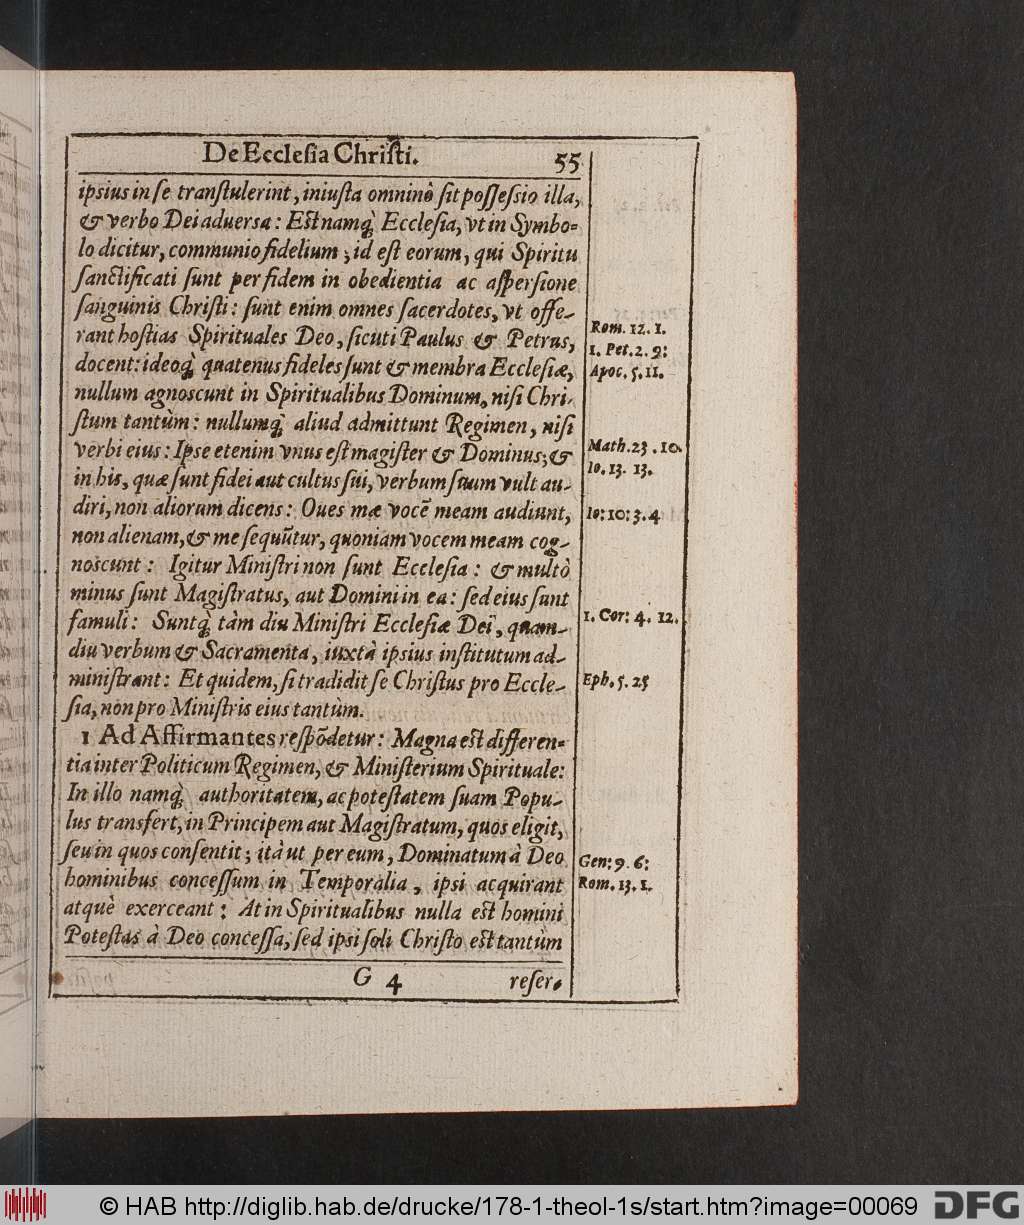 De Ecclesia Christi. 55
ipsius in se transtulerint, iniusta omninò sit possessio illa,
& verbo Dei aduersa: Est namq; Ecclesia, vt in Symbo=
lo dicitur, communio fidelium; id est eorum, qui Spiritu
sanctificati sunt per fidem in obedientia ac aspersione
sanguinis Christi: sunt enim omnes sacerdotes, vt offe-
rant hostias Spirituales Deo, sicuti Paulus & Petrus,
docent: ideoq; quatenus fideles sunt & membra Ecclesiæ,
nullum agnoscunt in Spiritualibus Dominum, nisi Chri-
stum tantùm: nullumq; aliud admittunt Regimen, nisi
verbi eius: Ipse etenim vnus est magister & Dominus; &
in his, quæ sunt fidei aut cultus sui, verbum suum vult au-
diri, non aliorum dicens: Oues meæ vocē meam audiunt,
non alienam, & me sequūtur, quoniam vocem meam cog-
noscunt: Igitur Ministri non sunt Ecclesia: & multò
minus sunt Magistratus, aut Domini in ea: sed eius sunt
famuli: Suntq; tàm diu Ministri Ecclesiæ Dei, quam-
diu verbum & Sacramenta, iuxtà ipsius institutum ad-
ministrant: Et quidem, si tradidit se Christus pro Eccle-
sia, non pro Ministris eius tantùm.
1 Ad Affirmantes respōdetur: Magna est differen=
tia inter Politicum Regimen, & Ministerium Spirituale:
In illo namq; authoritatem, ac potestatem suam Popu-
lus transfert, in Principem aut Magistratum, quos eligit,
seu in quos consentit; ità ut per eum, Dominatum à Deo
hominibus concessum in Temporalia, ipsi acquirant
atquè exerceant: At in Spiritualibus nulla est homini
Potestas à Deo concessa, sed ipsi soli Christo est tantùm
G 4 reser-
Rom. 12. 1.
1. Pet. 2. 9:
Apoc. 5. 11.
Math. 23. 10.
Io. 13. 13.
Io: 10: 3. 4
1. Cor: 4. 12.
Eph. 5. 25
Gen: 9. 6:
Rom. 13. 1.
© HAB http://diglib.hab.de/drucke/178-1-theol-1s/start.htm?image=00069
DFG